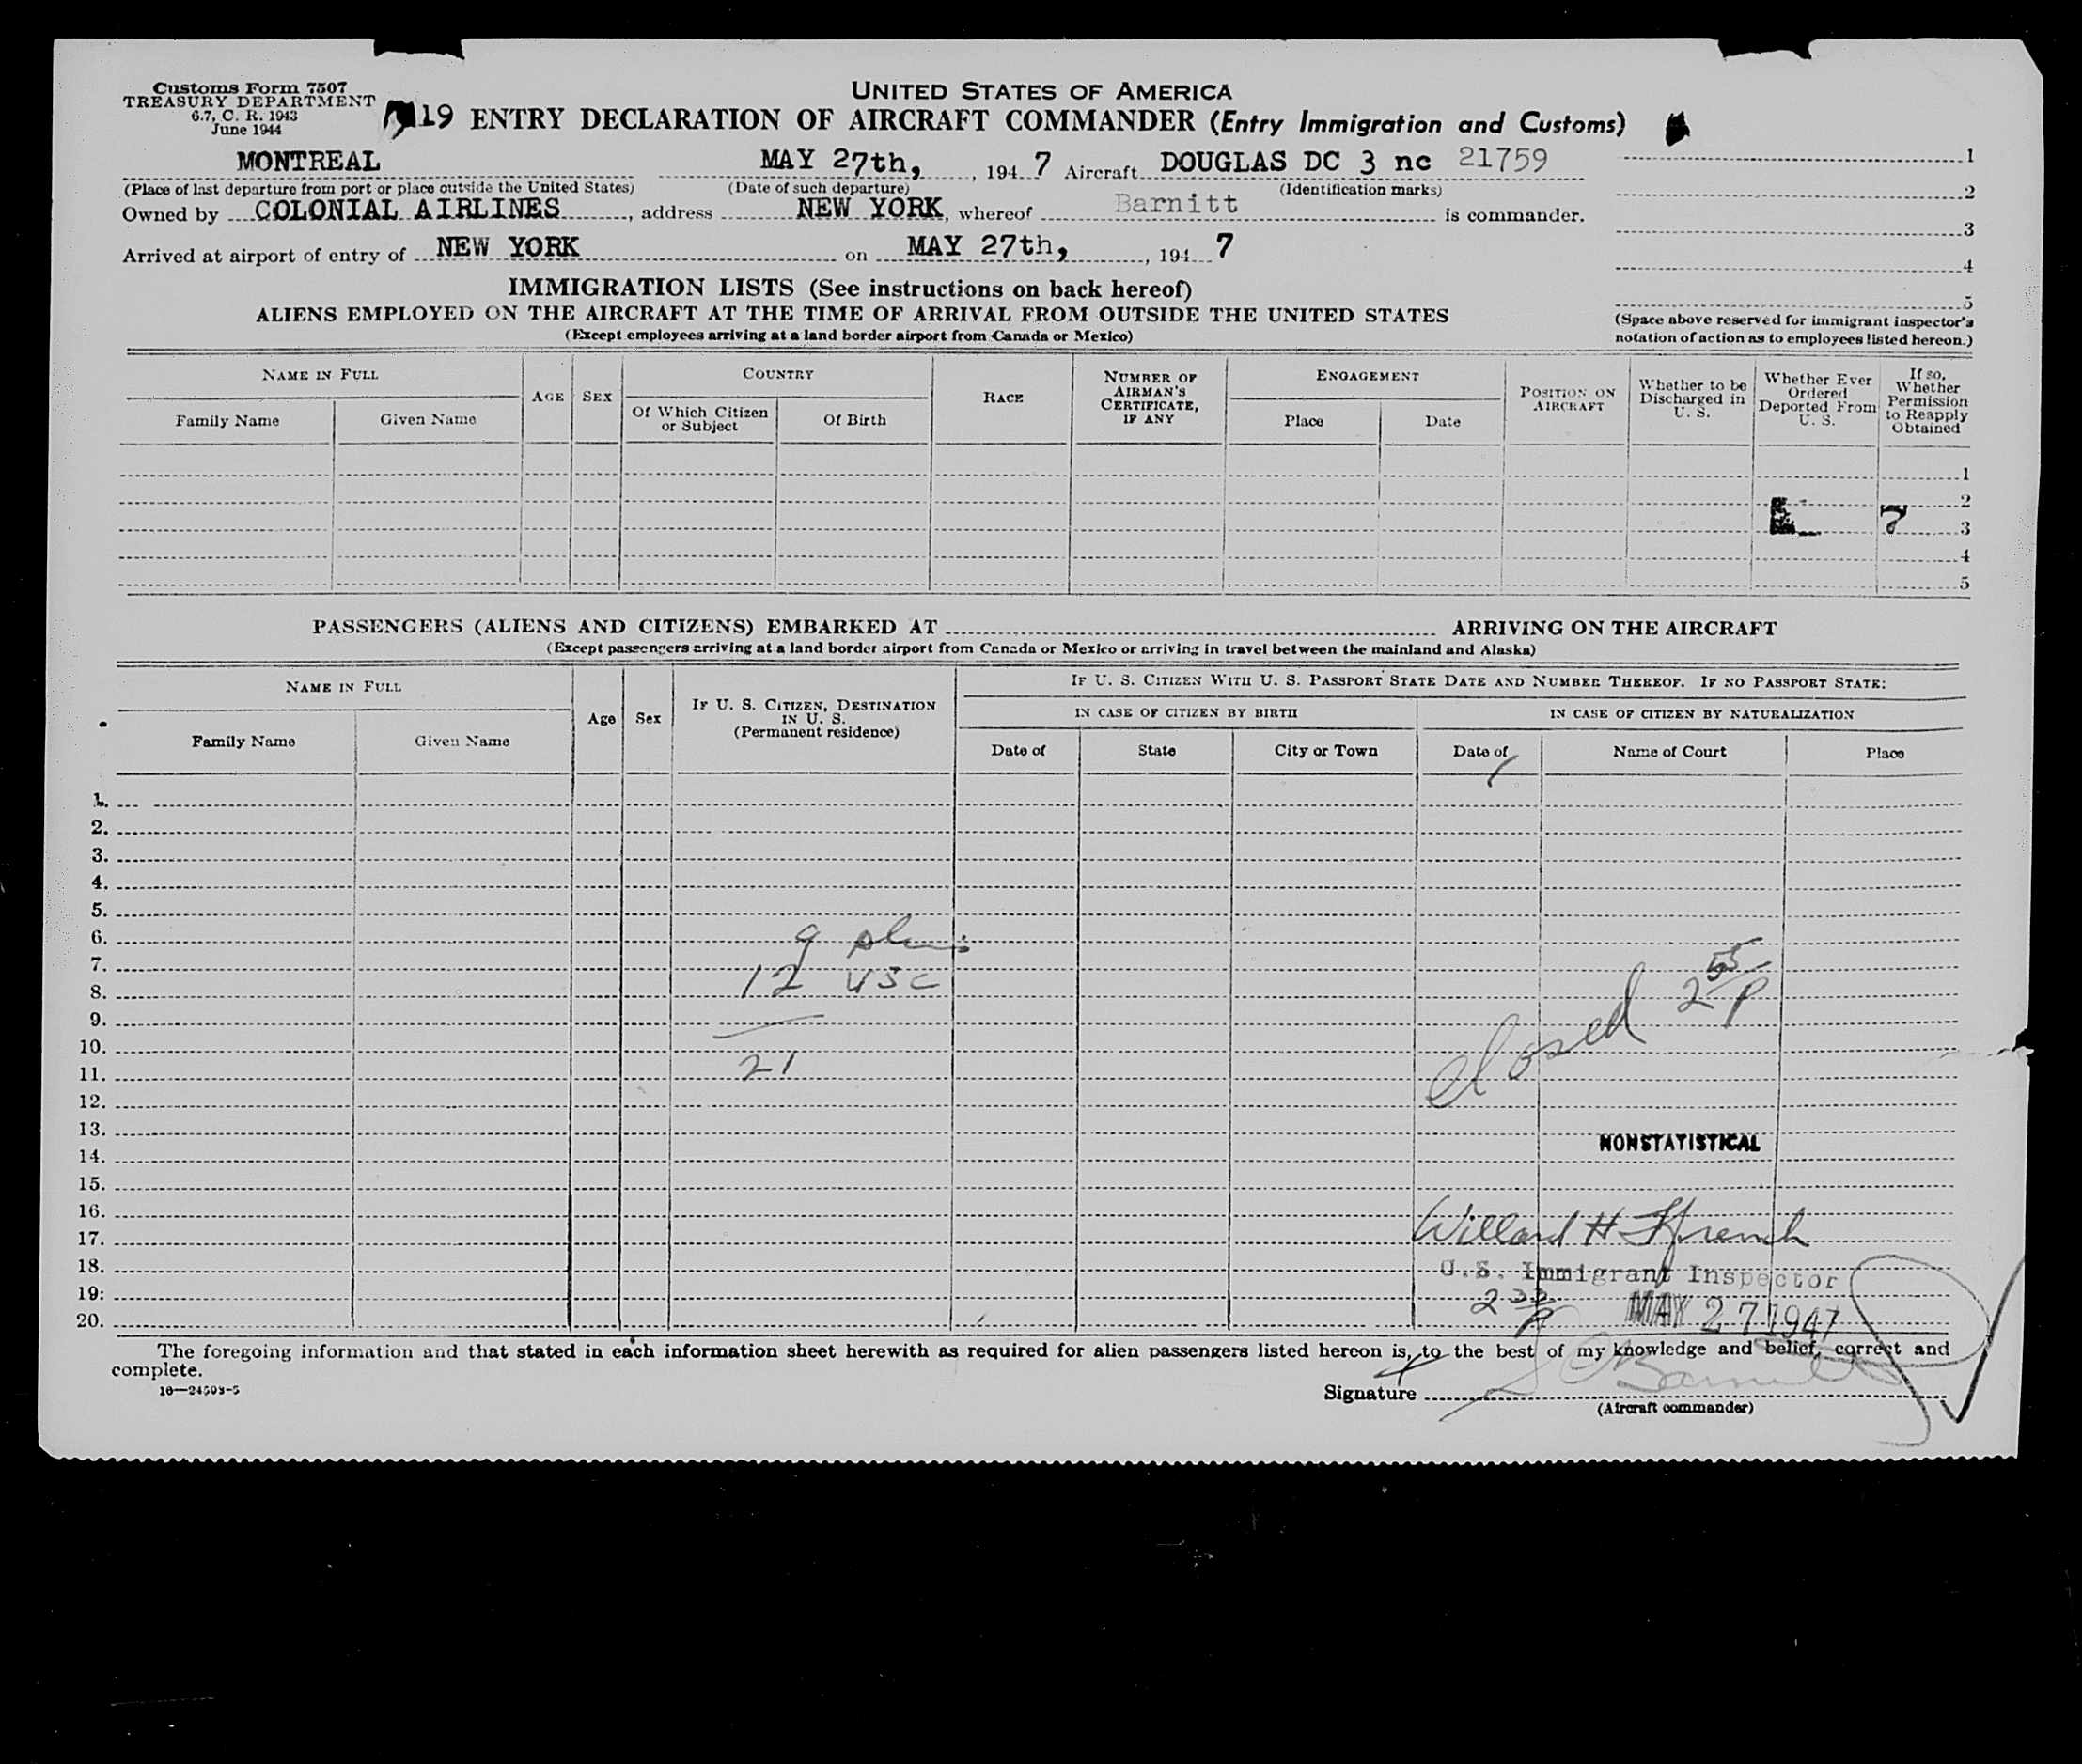 Customs Form 7507
TREASURY DEPARTMENT
6.7, C. R. 1943
June 1944
UNITED STATES OF AMERICA
19 ENTRY DECLARATION OF AIRCRAFT COMMANDER (Entry Immigration and Customs)
MONTREAL MAY 27th, , 194 7 Aircraft DOUGLAS DC 3 nc 21759
(Place of last departure from port or place outside the United States) (Date of such departure) (Identification marks)
Owned by COLONIAL AIRLINES, address NEW YORK, whereof Barnitt is commander.
Arrived at airport of entry of NEW YORK on MAY 27th, , 194 7
1
2
3
4
5
(Space above reserved for immigrant inspector's
notation of action as to employees listed hereon.)
IMMIGRATION LISTS (See instructions on back hereof)
ALIENS EMPLOYED ON THE AIRCRAFT AT THE TIME OF ARRIVAL FROM OUTSIDE THE UNITED STATES
(Except employees arriving at a land border airport from Canada or Mexico)
NAME IN FULL
Family Name Given Name
AGE SEX
COUNTRY
Of Which Citizen or Subject Of Birth
RACE
NUMBER OF AIRMAN'S CERTIFICATE, IF ANY
ENGAGEMENT
Place Date
POSITION ON AIRCRAFT
Whether to be Discharged in U. S.
Whether Ever Ordered Deported From U. S.
If so, Whether Permission to Reapply Obtained
1
2
7 3
4
5
PASSENGERS (ALIENS AND CITIZENS) EMBARKED AT ARRIVING ON THE AIRCRAFT
(Except passengers arriving at a land border airport from Canada or Mexico or arriving in travel between the mainland and Alaska)
NAME IN FULL
Family Name Given Name
Age Sex
IF U. S. CITIZEN, DESTINATION IN U. S.
(Permanent residence)
IF U. S. CITIZEN WITH U. S. PASSPORT STATE DATE AND NUMBER THEREOF. IF NO PASSPORT STATE:
IN CASE OF CITIZEN BY BIRTH IN CASE OF CITIZEN BY NATURALIZATION
Date of State City or Town Date of Name of Court Place
1.
2.
3.
4.
5.
6. 9
7. 12 USC
8.
9.
10.
11. 21
closed 2 55 P
12.
13.
NONSTATISTICAL
14.
15.
16.
17. Willard H
18. U.S. Immigrant Inspector
19.
20. MAY 27 1947
The foregoing information and that stated in each information sheet herewith as required for alien passengers listed hereon is, to the best of my knowledge and belief, correct and
complete.
16—24593-5
Signature
(Aircraft commander)